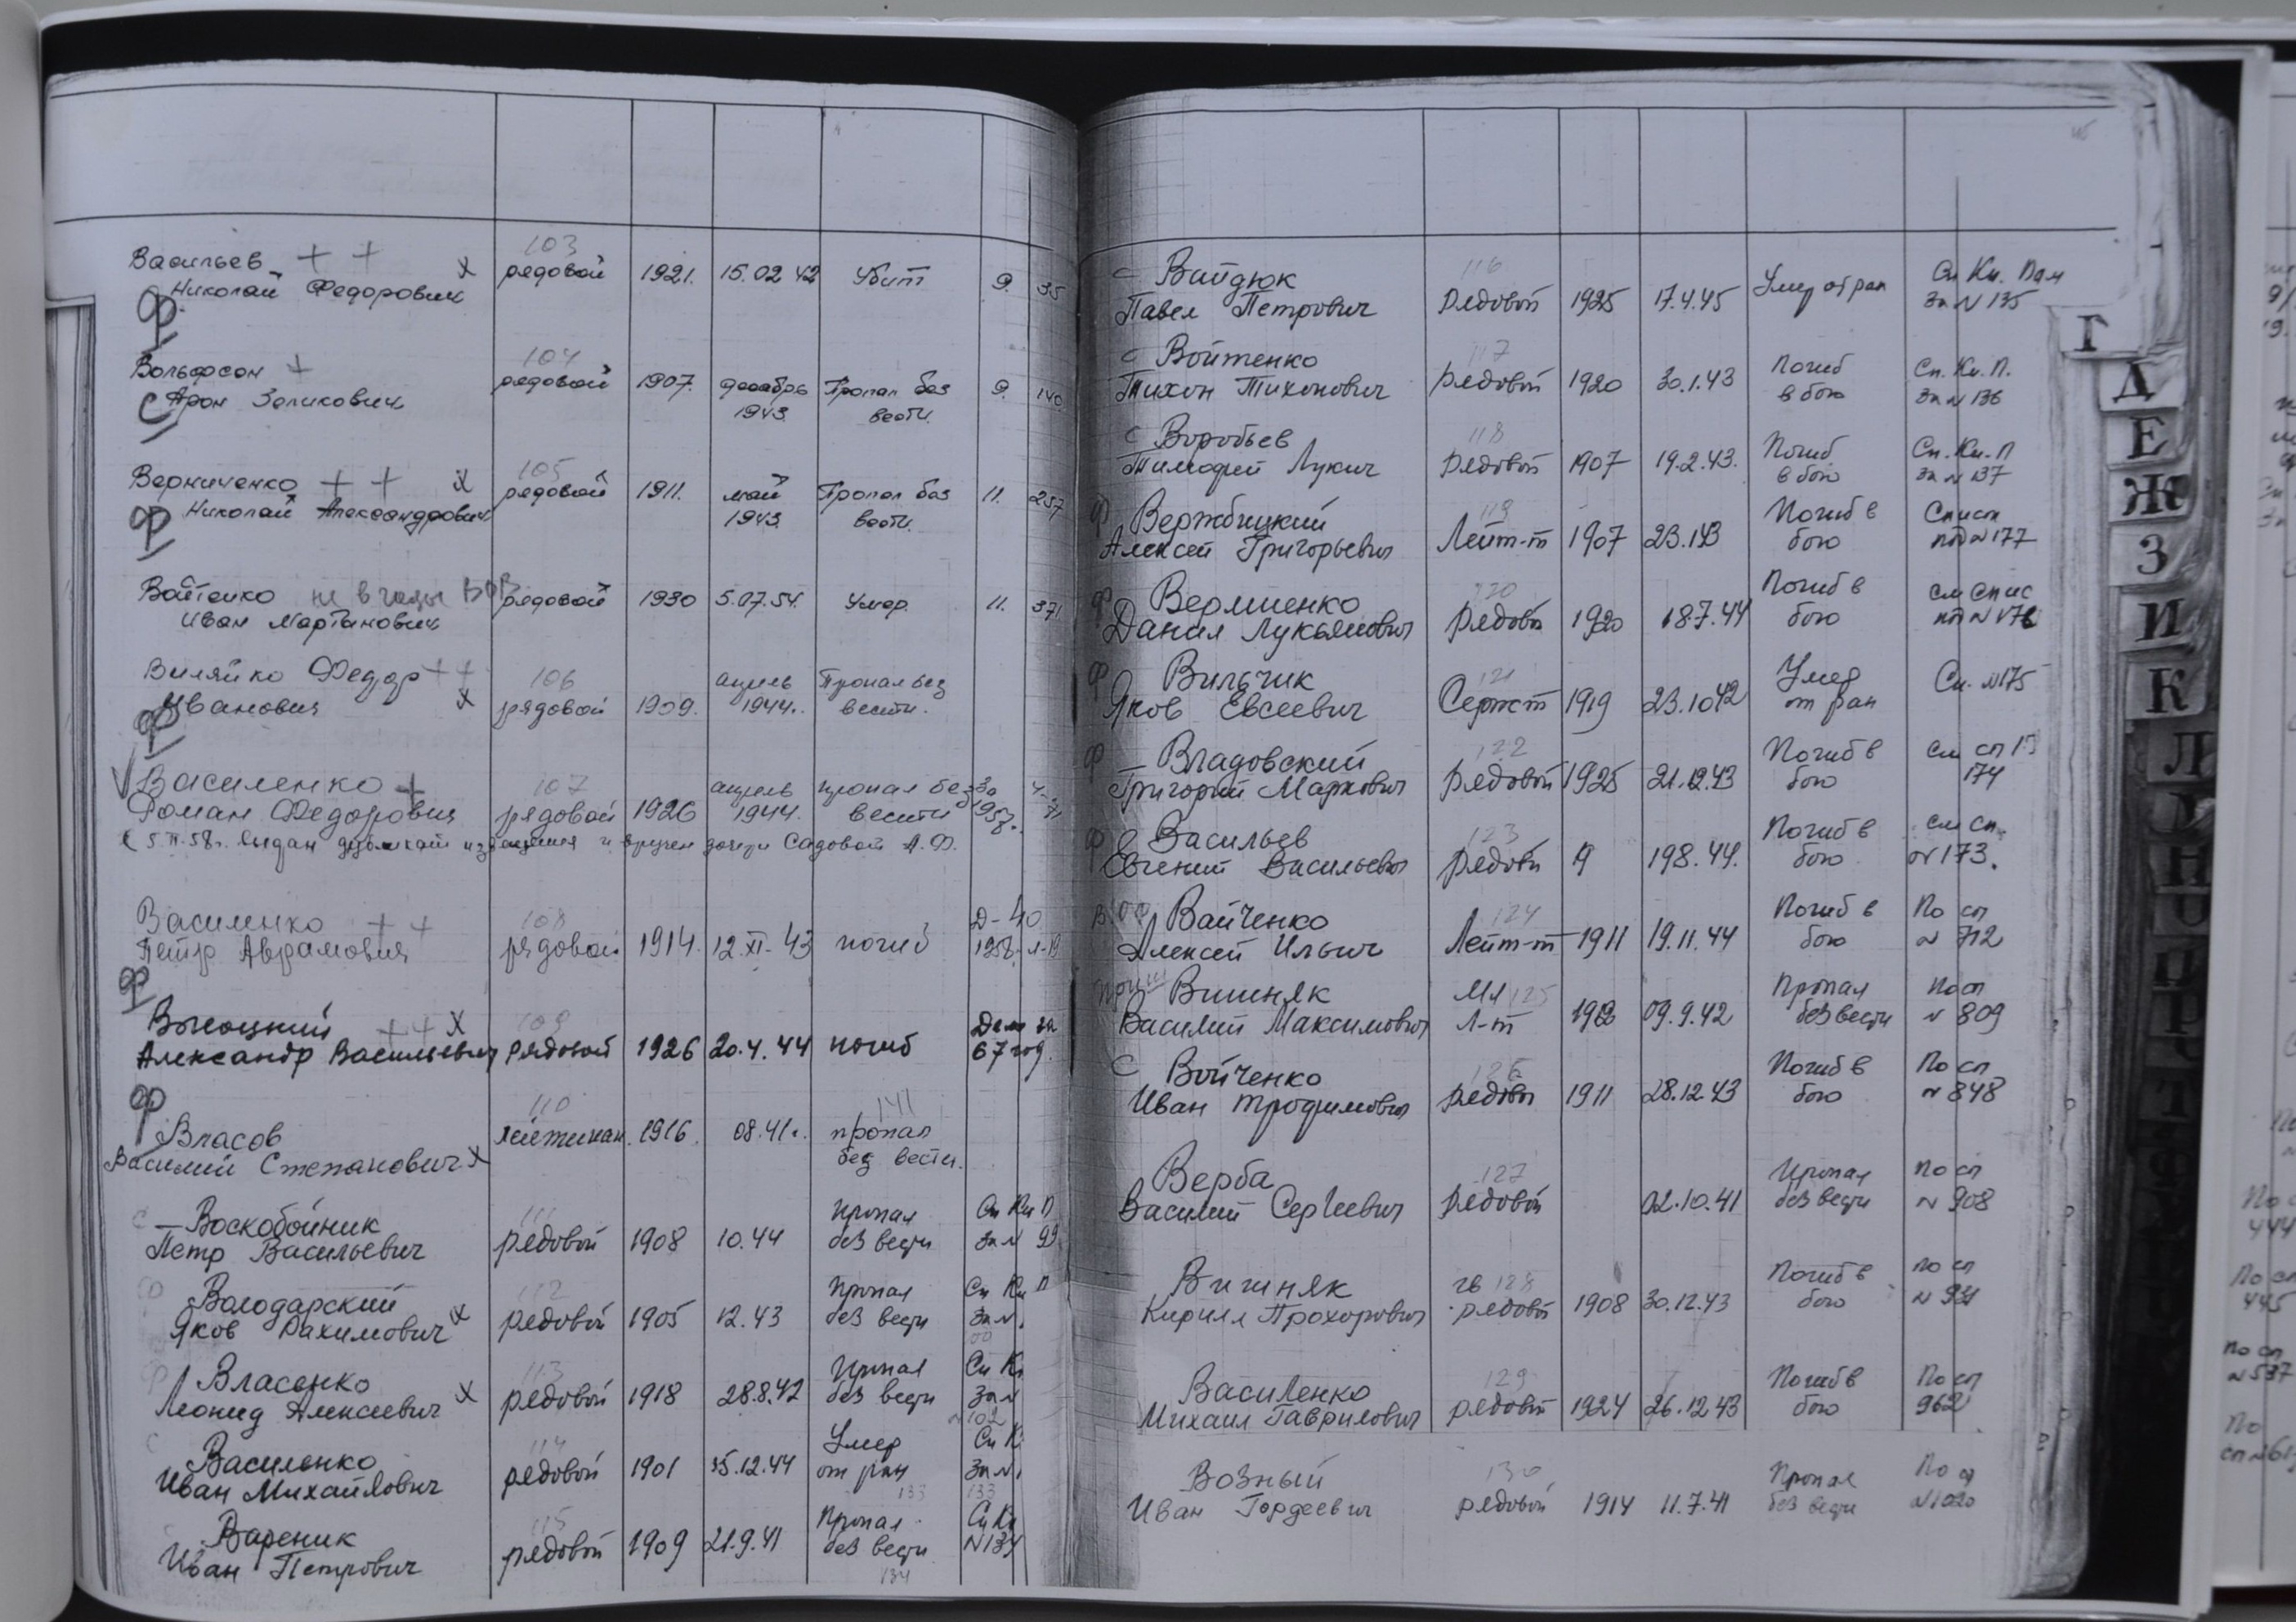 103
Васильев + + х рядовой 1921. 15.02 42 Убит 9. 35
Николай Федорович
ф
104
Вольфсон + рядовой 1907. декабрь Пропал без 9. 140
С Арон Зеликович 1943 вести.
105
Верниченко + + х рядовой 1911. май Пропал без 11. 257
Николай Александрович 1943 вести.
ф
Войтенко не в годы ВОВ рядовой 1930 5.07.54. Умер. 11. 371
Иван Мартинович
Виляйко Федор + + 106 апрель Пропал без
Иванович х рядовой 1909. 1944. вести.
ф
Василенко + 107 апрель пропал без За
Роман Федорович рядовой 1926 1944. вести 1957г.
5.II.58г. выдан дубликат извещения и вручен дочери Садовой А.Ф.
Василенко + + 108 Д-40
Петр Аврамович рядовой 1914. 12.XI-43 погиб 1958. л-19
ф
Высоцкий + + х 109 Дело за
Александр Васильевич рядовой 1926 20.4.44 погиб 67 год.
ф
110 141
Власов лейтинан. 1916. 08.41г. пропал
Василий Степанович х без вести.
с Воскобойник 111 Пропал Сп Кн П
Петр Васильевич рядовой 1908 10.44 без вести за № 99
ф Володарский 112 Пропал Сп Кн П
Яков Рахимович х рядовой 1905 12.43 без вести за №
ф Власенко 113 Пропал Сп Кн
Леонид Алексеевич х рядовой 1918 28.8.42 без вести за №
№102
с Василенко 114 Умер Сп К
Иван Михайлович рядовой 1901 15.12.44 от ран за №
133 133
с Вареник 115 Пропал Сп Кн
Иван Петрович рядовой 1909 21.9.41 без вести №134
134
с Вайдюк 116 Умер от ран Сп Кн. Пам
Павел Петрович Рядовой 1925 17.4.45 За № 135
с Войтенко 117 Погиб Сп. Кн. П.
Тихон Тихонович рядовой 1920 30.1.43 в бою За № 136
с Воробьев 118 Погиб Сп. Кн. П
Тимофей Лукич Рядовой 1907 19.2.43. в бою за № 137
ф Вержбицкий 119 Погиб в Список
Алексей Григорьевич Лейт-т 1907 23.1.43 бою под № 177
ф Вермиенко 120 Погиб в см спис
Данил Лукьянович Рядовой 1920 18.7.44 бою под № 176
ф Вильчик 121 Умер Сп. №175
Яков Евсеевич Сержт 1919 23.10.42 от ран
ф Владовский 122 Погиб в см сп
Григорий Маркович Рядовой 1925 21.12.43 бою 174
ф Васильев 123 Погиб в см сп.
Евгений Васильевич Рядовй 19 19.8.44. бою № 173.
Вайченко 124 Погиб в По сп
Алексей Ильич Лейт-т 1911 19.11.44 бою № 712
Вишняк Мл 125 Пропал По сп
Василий Максимович Л-т 09.9.42 без вести № 809
С Войченко 126 Погиб в По сп
Иван Трофимович Рядовой 1911 28.12.43 бою № 848
Верба 127 Пропал По сп
Василий Сергеевич Рядовой 02.10.41 без вести № 908
Вишняк гв 128 Погиб в по сп
Кирилл Прохорович рядовой 1908 30.12.43 бою № 931
Василенко 129 Погиб в По сп
Михаил Гаврилович рядовой 1924 26.12.43 бою 962
Возный 130 Пропал По сп
Иван Гордеевич рядовой 1914 11.7.41 без вести №1020
Г
Д
Е
Ж
З
И
К
Л
Н
По сп
444
По сп
445
по сп
№537
По